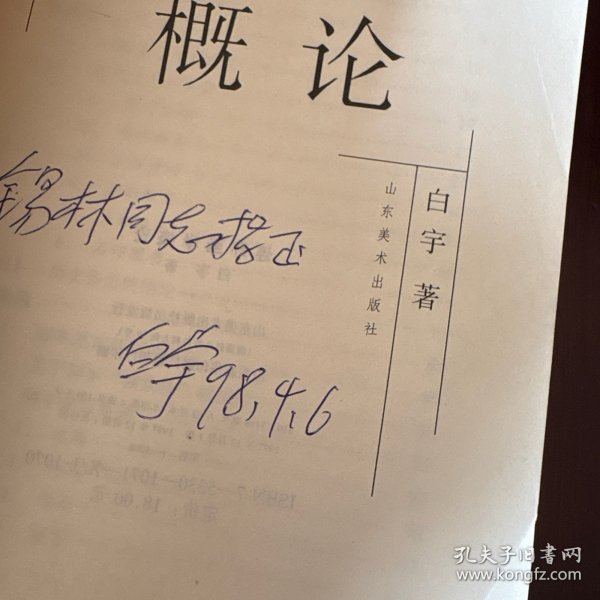 概论
白宇 著
山东美术出版社
锡林同志指正
白宇 98.4.6
孔夫子旧书网
www.kongfz.com